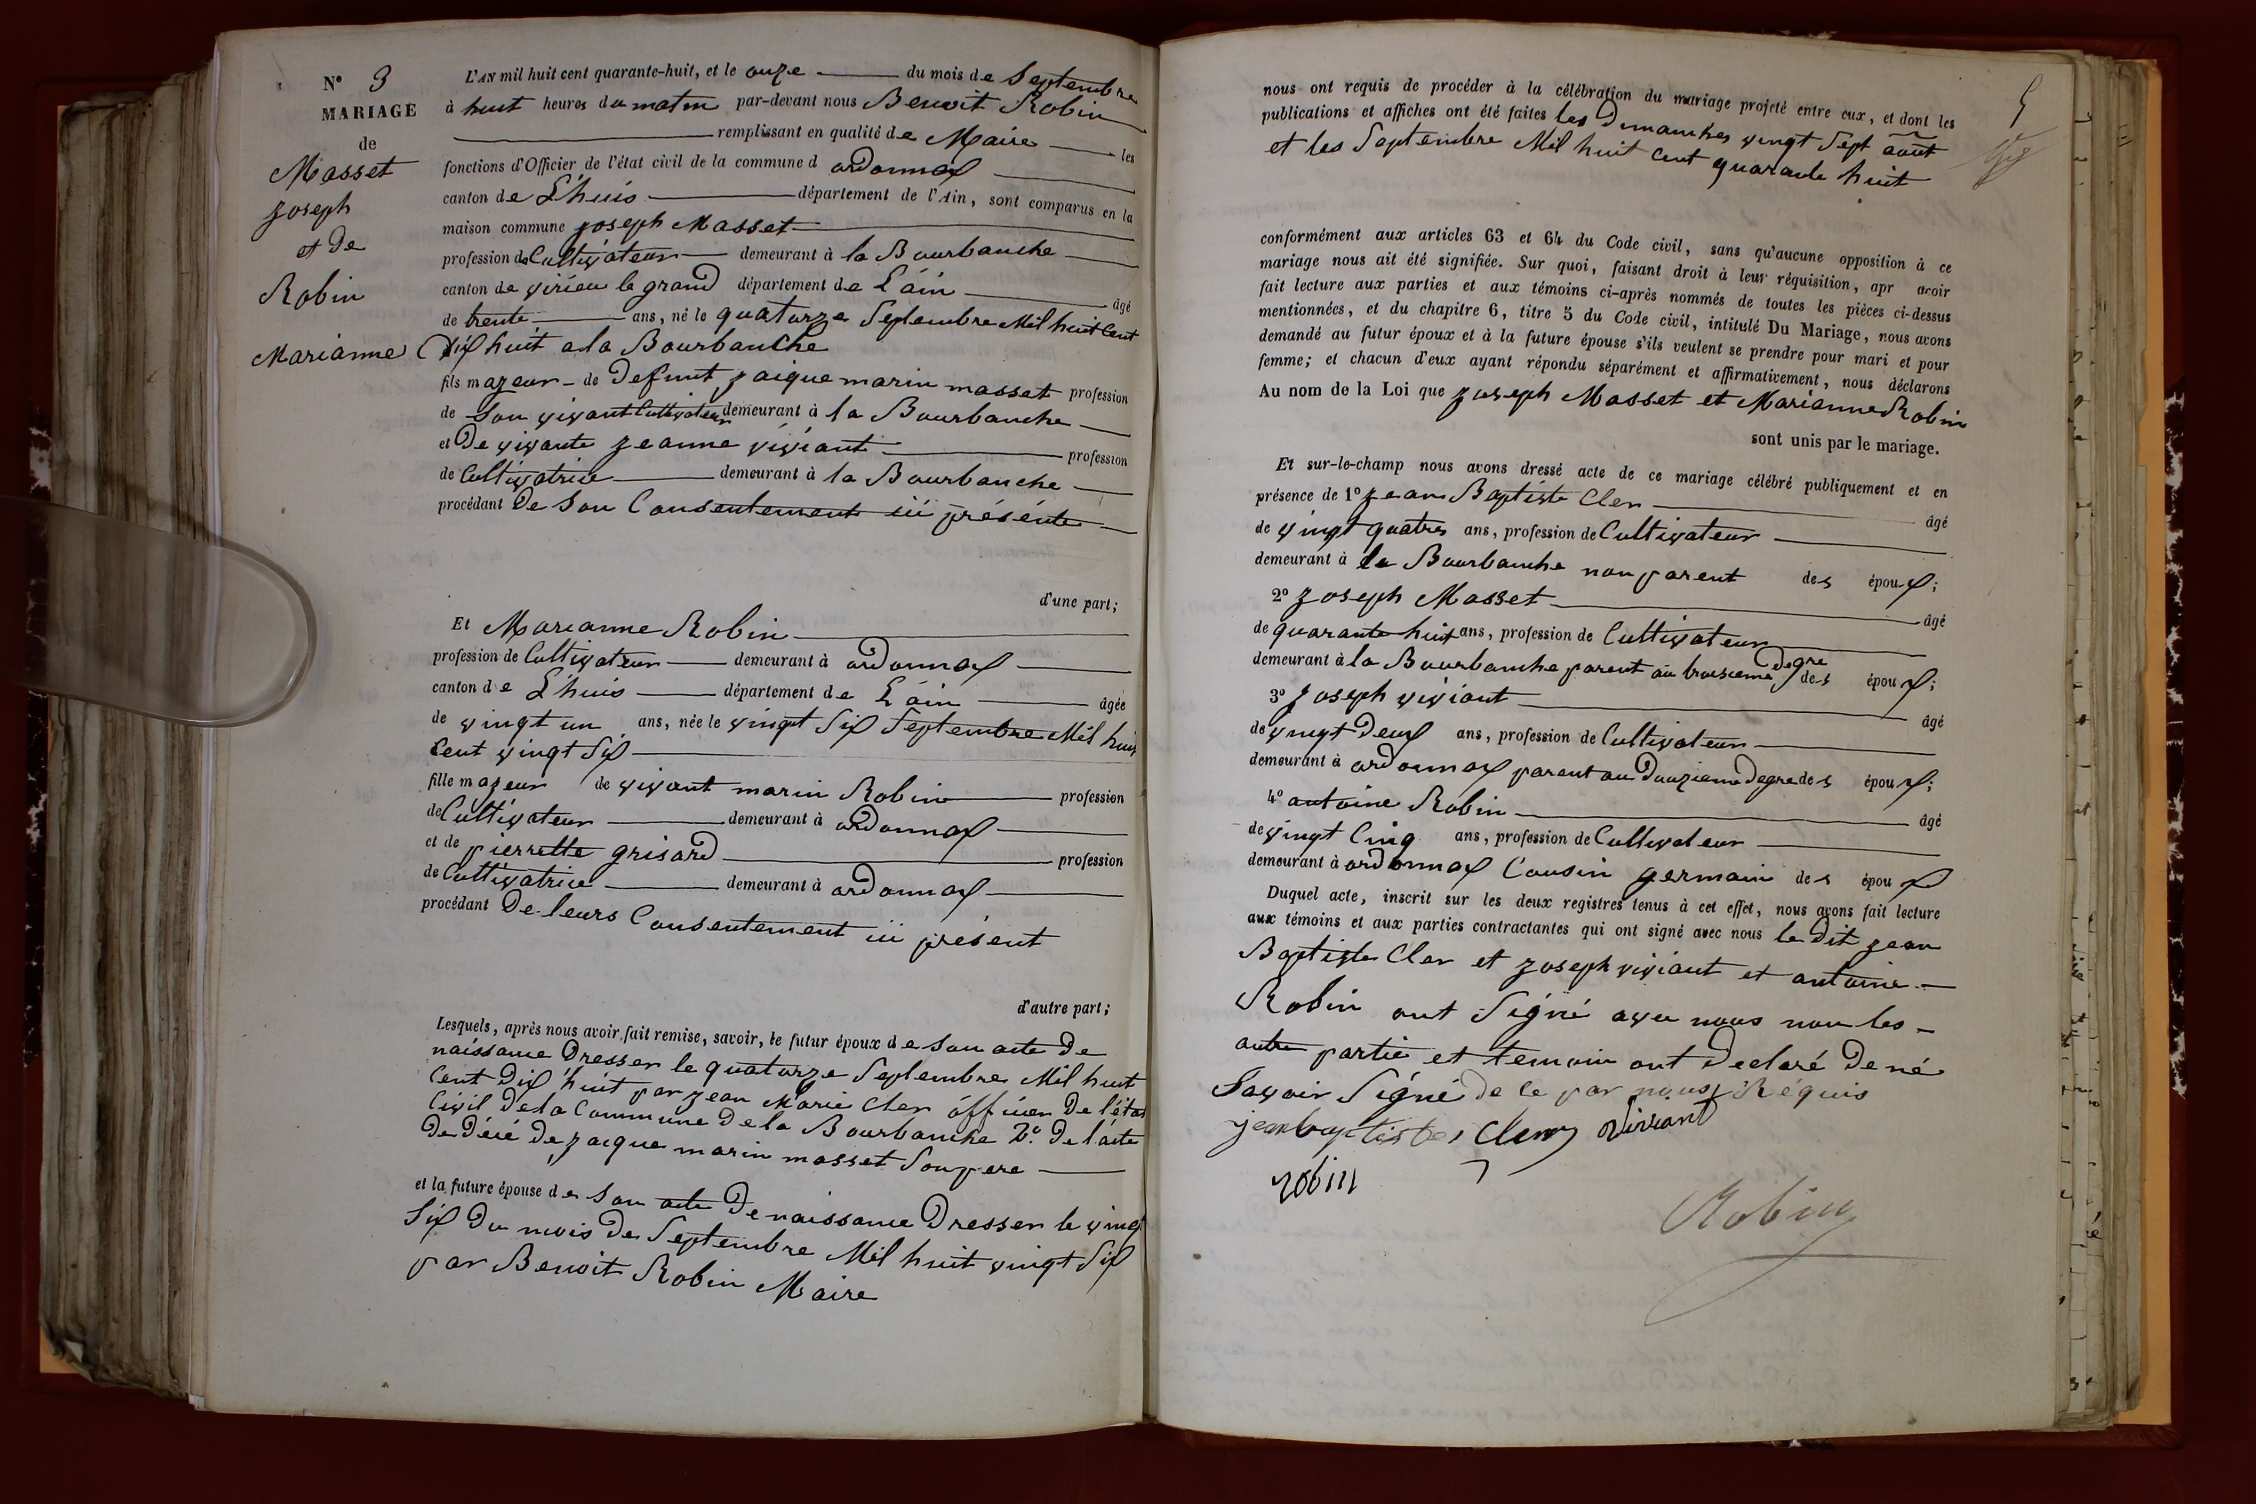 N° 3
MARIAGE
de
Masset
Joseph
et de
Robin
Marianne
L'AN mil huit cent quarante-huit, et le onze du mois de Septembre
à huit heures du matin par-devant nous Benoit Robin
remplissant en qualité de Maire les
fonctions d'Officier de l'état civil de la commune d ordonnax
canton de L'huis département de l'Ain, sont comparus en la
maison commune joseph Masset
profession de Cultivateur demeurant à la Bourbanche
canton de virieu le grand département de L'áin âgé
de trente ans, né le quatorze Septembre Mil huit Cent
Dix huit a la Bourbanche
fils majeur de Defunt jaique marin masset profession
de Son vivant Cultivateur demeurant à la Bourbanche
et De vivante jeanne viviant profession
de Cultivatrice demeurant à la Bourbanche
procédant De Son Consentement ici présénte
d'une part;
Et Marianne Robin
profession de Cultivateur demeurant à ordonnax
canton de L'huis département de L'áin âgée
de vingt un ans, née le vingt Six Septembre Mil huit
Cent vingt Six
fille majeur de vivant marin Robin profession
de Cultivateur demeurant à ordonnax
et de pierrette grisard profession
de Cultivatrice demeurant à ordonnax
procédant De leurs Consentement ici présent
d'autre part;
Lesquels, après nous avoir fait remise, savoir, le futur époux de Son acte De
naissance Dresser le quatorze Septembre Mil huit
Cent Dix huit par jean Marie Cler officier De l'état
Civil De la Commune De la Bourbanche 2° De l'acte
De Décé De jacque marin masset Son pere
et la future épouse de Son acte De naissance Dresser le vingt
Six Du mois de Septembre Mil huit vingt Six
par Benoit Robin Maire
5
nous ont requis de procéder à la célébration du mariage projeté entre eux, et dont les
publications et affiches ont été faites les Dimanches vingt Sept août
et les Septembre Mil huit Cent quarante huit
conformément aux articles 63 et 64 du Code civil, sans qu'aucune opposition à ce
mariage nous ait été signifiée. Sur quoi, faisant droit à leur réquisition, apr avoir
fait lecture aux parties et aux témoins ci-après nommés de toutes les pièces ci-dessus
mentionnées, et du chapitre 6, titre 5 du Code civil, intitulé Du Mariage, nous avons
demandé au futur époux et à la future épouse s'ils veulent se prendre pour mari et pour
femme; et chacun d'eux ayant répondu séparément et affirmativement, nous déclarons
Au nom de la Loi que joseph Masset et Marianne Robin
sont unis par le mariage.
Et sur-le-champ nous avons dressé acte de ce mariage célébré publiquement et en
présence de 1° jean Baptiste Cler âgé
de vingt quatres ans, profession de Cultivateur
demeurant à la Bourbanche non parent des époux;
2° joseph Masset âgé
de quarante huit ans, profession de Cultivateur
demeurant à la Bourbanche parent au troisieme degre des époux;
3° joseph viviant âgé
de vingt Deux ans, profession de Cultivateur
demeurant à ordonnax parent au Douzieme Degre des époux;
4° antoine Robin âgé
de vingt Cinq ans, profession de Cultivateur
demeurant à ordonnax Cousin germain des époux
Duquel acte, inscrit sur les deux registres tenus à cet effet, nous avons fait lecture
aux témoins et aux parties contractantes qui ont signé avec nous le dit jean
Baptiste Cler et joseph viviant et antoine
Robin ont Signé avec nous non les
autre partie et temoin ont Declaré De né
Savoir Signé de ce par nous Réquis
jean baptiste Cler Viviant
robin
Robin